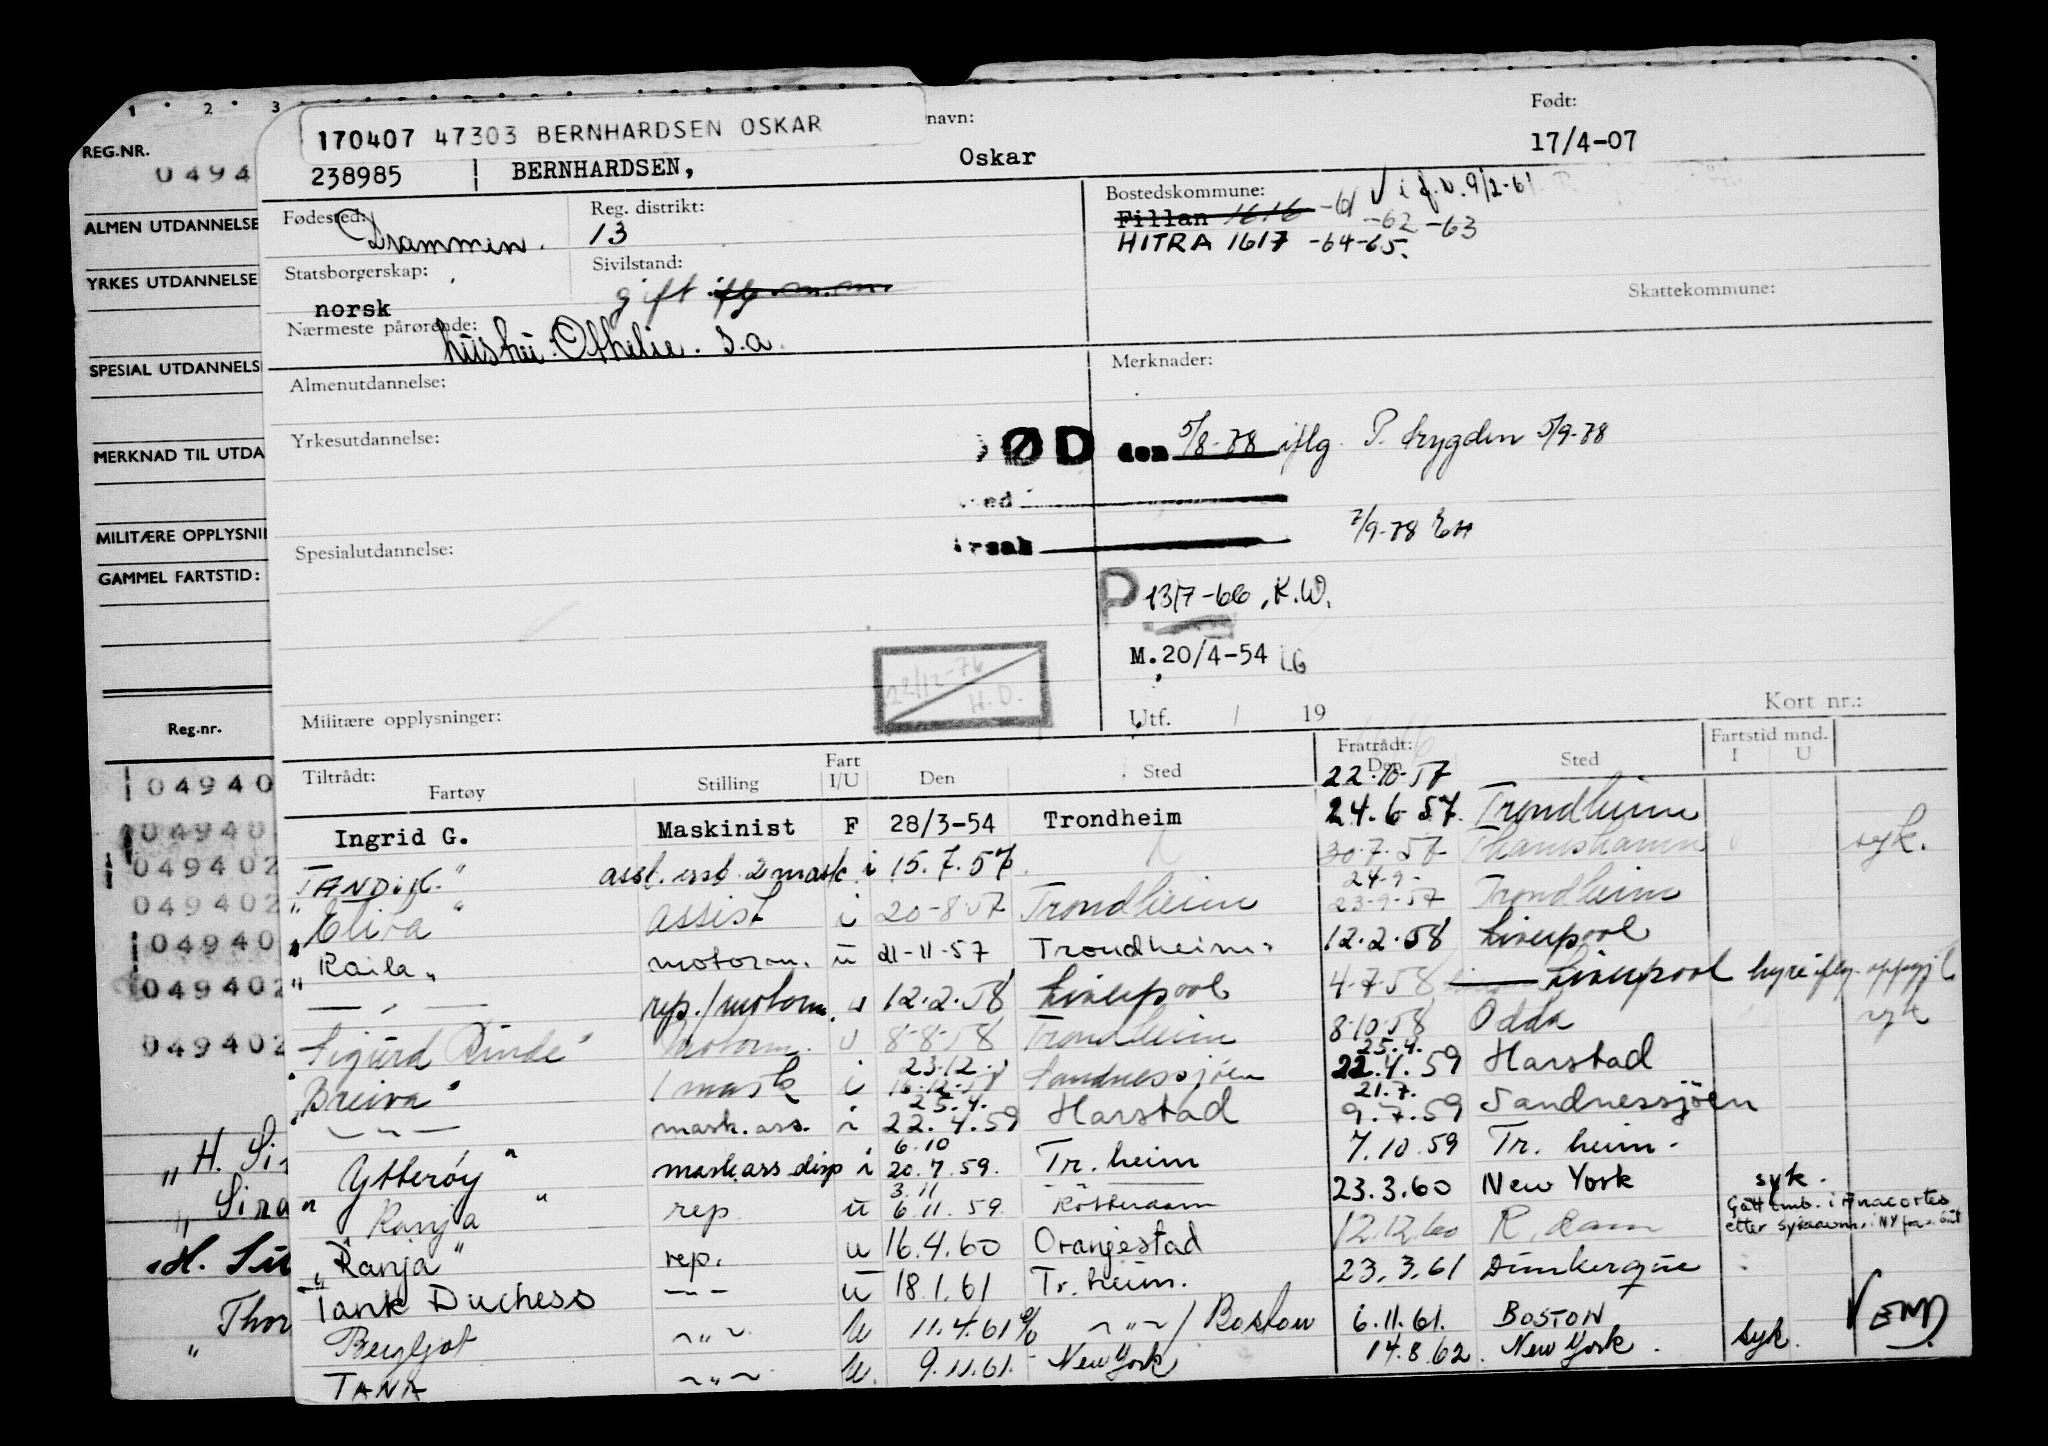 1 2 3
REG.NR.
0494
ALMEN UTDANNELSE
YRKES UTDANNELSE
SPESIAL UTDANNELS
MERKNAD TIL UTDA
MILITÆRE OPPLYSNI
GAMMEL FARTSTID:
Reg.nr.
04940
04940
049402
049402
04940
049402
049402
„ H. Si
„ Sira
H. Sir
Thor
"
170407 47303 BERNHARDSEN OSKAR navn: Født:
238985 BERNHARDSEN, Oskar 17/4-07
Fødested: Drammen. Reg. distrikt: 13
Bostedskommune: Fillan 1616 -61 √ i f.v. 9/2-61
-62 -63
HITRA 1617 -64-65.
Statsborgerskap: norsk Sivilstand: gift
Skattekommune:
Nærmeste pårørende: hustru: Othelie. s.a.
Almenutdannelse: Merknader:
Yrkesutdannelse: ØD den 5/8-78 iflg. P. trygden 5/9-78
ed
7/9-78 EH
Spesialutdannelse: rsak
P 13/7-66, K.W.
M. 20/4-54 LG
22/12-76 H.D.
Militære opplysninger: Utf. / 19 Kort nr.:
Tiltrådt: Fratrådt: Fartstid mnd.
Fartøy Stilling Fart I/U Den Sted Den Sted I U
22.10.57
Ingrid G. Maskinist F 28/3-54 Trondheim 24.6.57. Trondheim
"TANDIK." asst. 2 mask. i 15.7.57. 30.7.57 Thamshamn syk.
24-9-
"Eliva" assist i 20-8-57 Trondheim 23-9-57 Trondheim
"Raila" motorm. u 21-11-57 Trondheim. 12.2.58 Liverpool
— " — rep./motorm. u 12.2.58 Liverpool 4-7-58 Liverpool hyre iflg. oppgj.
"Sigurd Rinde" Motorm. u 8-8-58 Trondheim 8-10-58 Odda syk
23.12. 25.4.
"Breiva" 1 mask i 16.12.58 Sandnessjöen 22.4.59 Harstad
25.4. 21.7.
— " — mask.ass. i 22.4.59 Harstad 9.7.59 Sandnessjöen
6.10
"Ytterøy" mask.ass disp i 20.7.59. Tr.heim 7.10.59 Tr.heim.
3.11
"Ranja" rep. u 6.11.59 Rotterdam 23.3.60 New York syk.
Gått omb. i Anacortes
"Ranja" rep. u 16.4.60 Oranjestad 12.12.60 R.dam
Tank Duchess — " — u 18.1.61 Tr.heim. 23.3.61 Dunkerque
Bergljot — " — u 11.4.61 % — " — / Boston 6.11.61. BOSTON √ EMD
TANK — " — u. 9.11.61. New York 14.8.62. New York. syk.